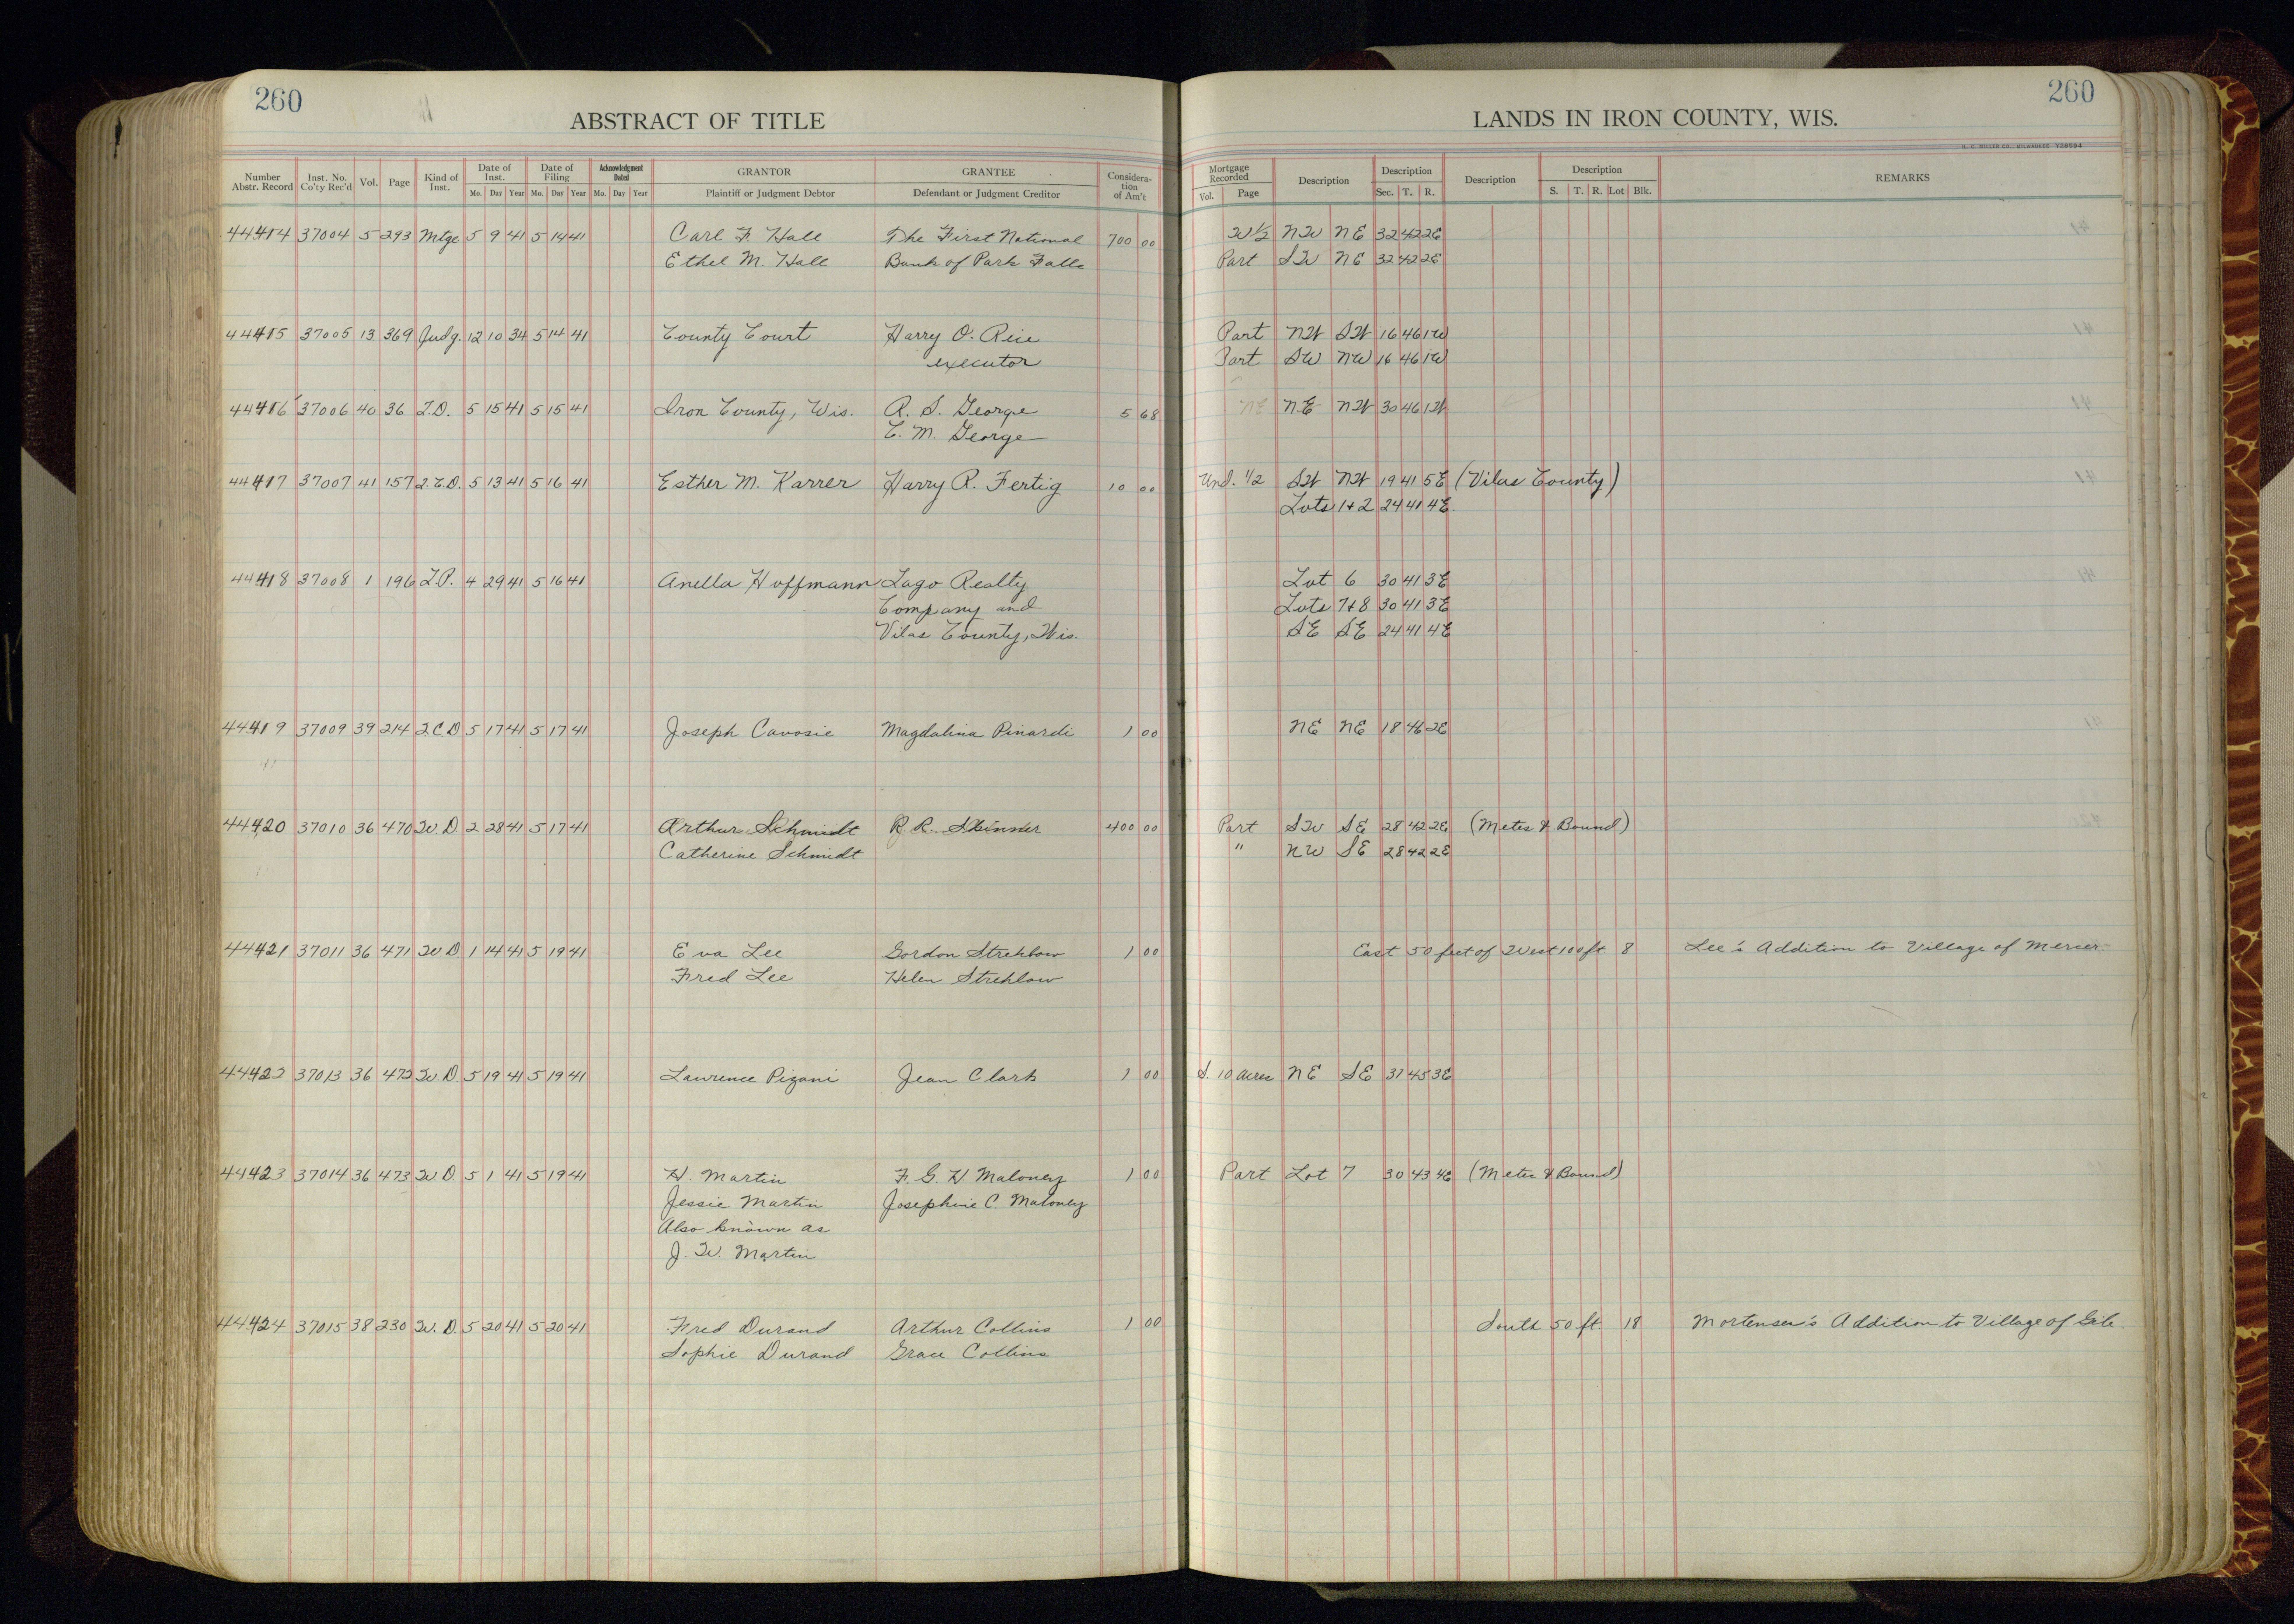 260
ABSTRACT OF TITLE
Number Abstr. Record Inst. No. Co'ty Rec'd Vol. Page Kind of Inst. Date of Inst. Mo. Day Year Date of Filing Mo. Day Year Acknowledgment Dated Mo. Day Year GRANTOR Plaintiff or Judgment Debtor GRANTEE Defendant or Judgment Creditor Considera-tion of Am't
44414 37004 5 293 Mtge 5 9 41 5 14 41 Carl F. Hall The First National 700 00
Ethel M. Hall Bank of Park Falls
44415 37005 13 369 Judg. 12 10 34 5 14 41 County Court Harry O. Rice
executor
44416 37006 40 36 T.D. 5 15 41 5 15 41 Iron County, Wis. R. S. George 5 68
E. M. George
44417 37007 41 157 Q.C.D. 5 13 41 5 16 41 Esther M. Karrer Harry R. Fertig 10 00
44418 37008 1 196 L.P. 4 29 41 5 16 41 Anella Hoffmann Lago Realty
Company and
Vilas County, Wis.
44419 37009 39 214 Q.C.D 5 17 41 5 17 41 Joseph Cavosie Magdalina Pinardi 1 00
44420 37010 36 470 W.D. 2 28 41 5 17 41 Arthur Schmidt R. R. Skinner 400 00
Catherine Schmidt
44421 37011 36 471 W.D. 1 14 41 5 19 41 Eva Lee Gordon Strehlow 1 00
Fred Lee Helen Strehlow
44422 37013 36 472 W.D. 5 19 41 5 19 41 Lawrence Pizani Jean Clark 1 00
44423 37014 36 473 W.D. 5 1 41 5 19 41 H. Martin F. G. H Maloney 1 00
Jessie Martin Josephine C. Maloney
Also known as
J. W. Martin
44424 37015 38 230 W.D. 5 20 41 5 20 41 Fred Durand Arthur Collins 1 00
Sophie Durand Grace Collins
260
LANDS IN IRON COUNTY, WIS.
Mortgage Recorded Vol. Page Description Description Sec. T. R. Description Description S. T. R. Lot Blk. REMARKS
W½ NW NE 32 42 2E
Part SW NE 32 42 2E
Part NW SW 16 46 1W
Part SW NW 16 46 1W
NE NW 30 46 1W
Und. 1/2 SW NW 19 41 5E (Vilas County)
Lots 1+2 24 41 4E
Lot 6 30 41 3E
Lots 7+8 30 41 3E
SE SE 24 41 4E
NE NE 18 46 2E
Part SW SE 28 42 2E (Metes & Bound)
" NW SE 28 42 2E
East 50 feet of West 100 ft 8 Lee's Addition to Village of Mercer.
S. 10 Acres NE SE 31 45 3E
Part Lot 7 30 43 4E (Metes & Bound)
South 50 ft 18 Mortensen's Addition to Village of Gile